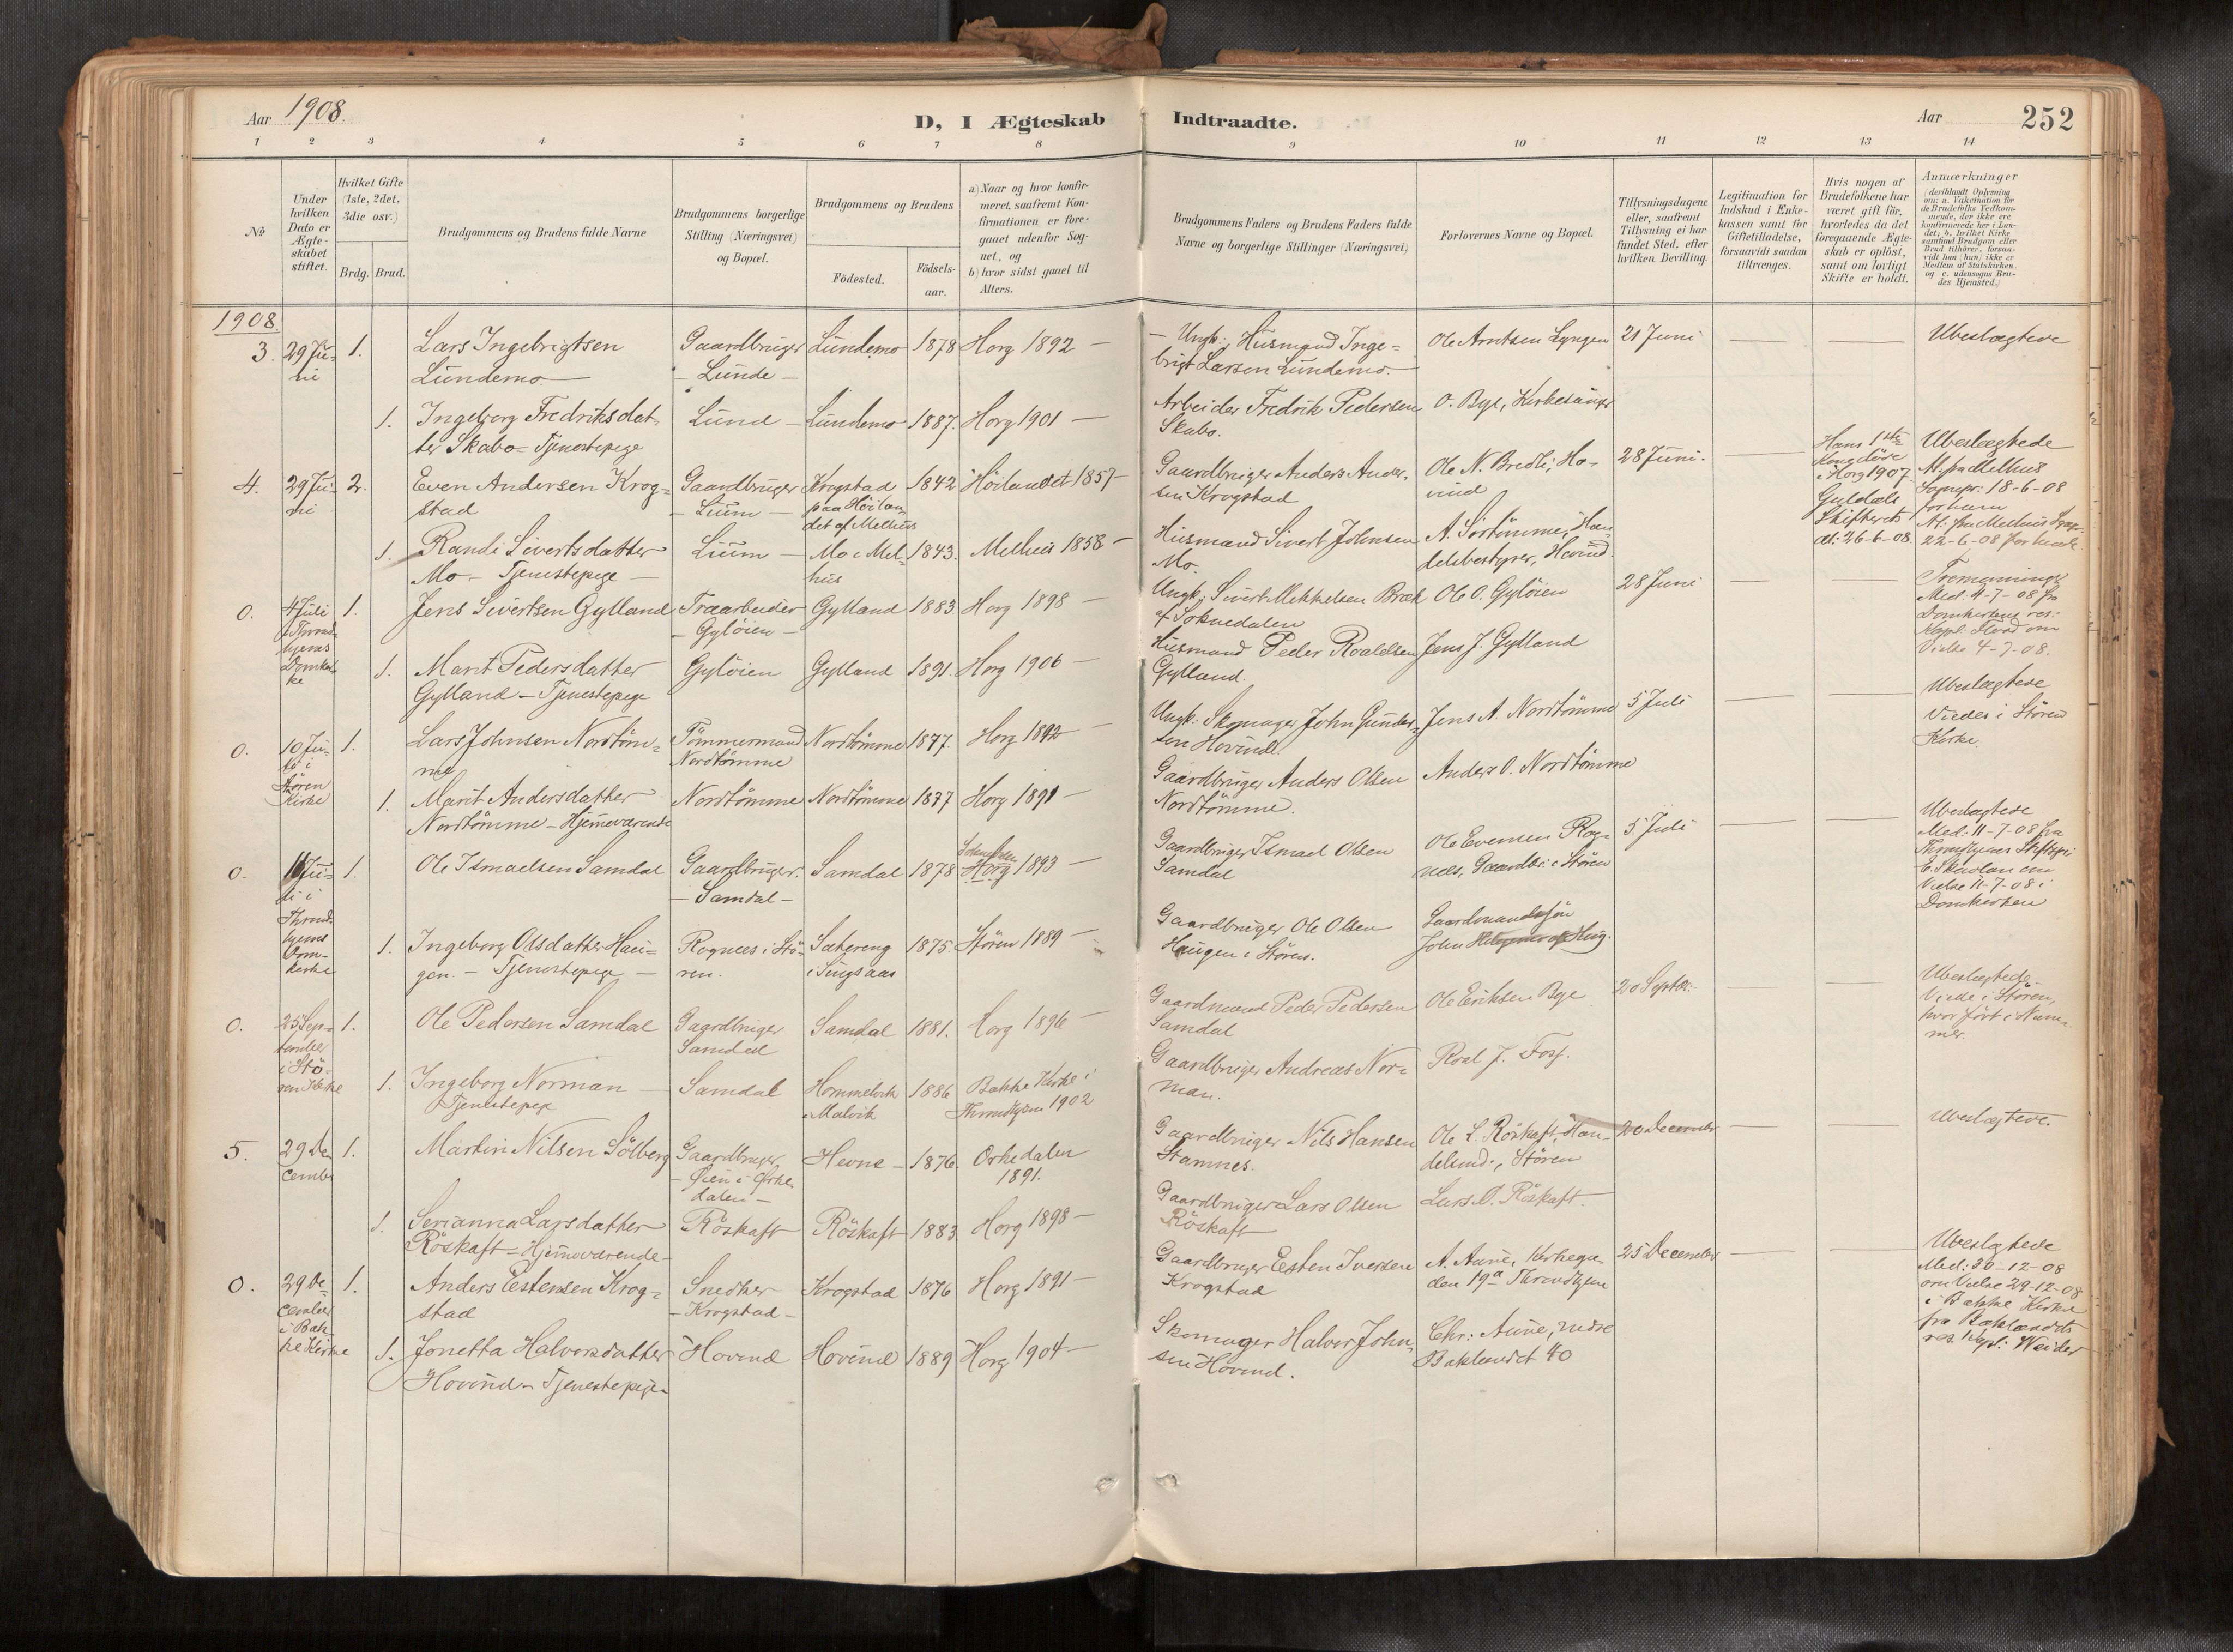 Aar 1908.
D, I Ægteskab
Indtraadte.
Aar
252
1 2 3 4 5 6 7 8 9 10 11 12 13 14
No
Under hvilken Dato er Ægteskabet stiftet.
Hvilket Gifte (1ste, 2det, 3die osv.)
Brdg. Brud.
Brudgommens og Brudens fulde Navne
Brudgommens borgerlige Stilling (Næringsvei) og Bopæl.
Brudgommens og Brudens
Födested.
Födselsaar.
a) Naar og hvor konfirmeret, saafremt Konfirmationen er foregaaet udenfor Sognet, og
b) hvor sidst gaaet til Alters.
Brudgommens Faders og Brudens Faders fulde Navne og borgerlige Stillinger (Næringsvei)
Forlovernes Navne og Bopæl.
Tillysningsdagene eller, saafremt Tillysning ei har fundet Sted, efter hvilken Bevilling.
Legitimation for Indskud i Enkekassen samt for Giftetilladelse, forsaavidt saadan tiltrænges.
Hvis nogen af Brudefolkene har været gift för, hvorledes da det foregaaende Ægteskab er oplöst, samt om lovligt Skifte er holdt.
Anmærkninger
(deriblandt Oplysning om: a. Vakcination for de Brudefolks Vedkommende, der ikke ere konfirmerede her i Landet; b. hvilket Kirkesamfund Brudgom eller Brud tilhörer, forsaavidt han (hun) ikke er Medlem af Statskirken, og c. udensogns Brudes Hjemsted.)
1908.
3. 29 Juni 1. Lars Ingebrigtsen Lundemo Gaardbruger - Lunde - Lundemo 1878 Horg 1892 — Ungk: Husmand Ingebrigt Larsen Lundemo. Ole Arntsen Lyngen 21 Juni Ubeslægtede
1. Ingeborg Fredriksdatter Skabo - Tjenestepige Lund - Lundemo 1887. Horg 1901 — Arbeider Fredrik Pedersen Skabo. O. Bye, Kirkesanger
4. 29 Juni 2. Even Andersen Krogstad Gaardbruger - Lium - Krogstad paa Höilandet af Melhus 1842 Höilandet 1857 - Gaardbruger Anders Andersen Krogstad Ole N. Bredli, Hovind 28 Juni. Hans 1ste Kone döde i Horg 1907. Guldals Skifterets at: 26-6-08 Ubeslægtede At. fra Melhus Sognepr: 18-6-08 for ham At: fra Melhus Sognepr. 22-6-08 for hende.
1. Randi Sivertsdatter Mo - Tjenestepige - Lium - Mo i Melhus 1843. Melhus 1858 - Husmand Sivert Johnsen Mo. A. Sörtömme, Handelsbestyrer, Hovind
0. 4 Juli i Throndhjems Domkirke 1. Jens Sivertsen Gylland Træarbeider - Gylöien - Gylland 1883 Horg 1898 — Ungk: Sivert Mikkelsen Bræk af Soknedalen Ole O. Gylöien 28 Juni Tremænninge Med. 4-7-08 fra Domkirkens res: Kapl. om Vielse 4-7-08.
1. Marit Pedersdatter Gylland - Tjenestepige Gylöien Gylland 1891. Horg 1906 — Husmand Peder Roaldsen Gylland. Jens J. Gylland
0. 10 Juli i Stören Kirke 1. Lars Johnsen Nordtömme Tömmermand Nordtömme Nordtömme 1877. Horg 1892 — Ungk: Skomager John Gundersen Hovind. Jens A. Nordtömme 5 Juli Ubeslægtede Viedes i Stören Kirke.
1. Marit Andersdatter Nordtömme - Hjemmeværende Nordtömme Nordtömme 1877 Horg 1891 — Gaardbruger Anders Olsen Nordtömme. Anders O. Nordtömme
0. 11 Juli i Throndhjems Domkirke 1. Ole Ismaelsen Samdal Gaardbruger. - Samdal - Samdal 1878 Horg 1893 — Gaardbruger Ismael Olsen Samdal Ole Evensen Rognæs, Gaardbr: i Stören 5 Juli Ubeslægtede Med: 11-7-08 fra Throndhjems Stiftspr: E. Skavlan om Vielse 11-7-08 i Domkirken
1. Ingeborg Olsdatter Haugen. - Tjenestepige - Rognæs i Stören. Sætereng i Singsaas 1875. Stören 1889 - Gaardbruger Ole Olsen Haugen i Stören. Gaardmandssön John
0. 25 September i Stören Kirke 1. Ole Pedersen Samdal Gaardbruger Samdal Samdal 1881. Horg 1896 — Gaardmand Peder Pedersen Samdal Ole Eriksen Bye 20 Septbr. Ubeslægtede Viede i Stören, hvor fört i Nummer.
1. Ingeborg Norman - Tjenestepige Samdal Hommelvik i Malvik 1886 Bakke Kirke i Throndhjem 1902 Gaardbruger Andreas Norman. Roal J. Foss.
5. 29 December 1. Martin Nilsen Sölberg Gaardbruger - Öien i Orkedalen - Hevne - 1876. Orkedalen 1891. Gaardbruger Nils Hansen Stamnes. Ole L. Röskaft, Handelsmd:, Stören 20 December Ubeslægtede.
1. Serianna Larsdatter Röskaft - Hjemmeværende - Röskaft Röskaft 1883 Horg 1898 - Gaardbruger Lars Olsen Röskaft Lars O. Röskaft.
0. 29 December i Bakke Kirke 1. Anders Estensen Krogstad Snedker - Krogstad - Krogstad 1876 Horg 1891 - Gaardbruger Esten Iversen Krogstad A. Aune, Kirkegaden 19a Throndhjem 25 December Ubeslægtede Med: 30-12-08 om Vielse 29-12-08 i Bakke Kirke fra Baklandets res. Kapl: Weider
1. Jonetta Halvorsdatter Hovind - Tjenestepige - Hovind Hovind 1889 Horg 1904 — Skomager Halvor Johnsen Hovind. Chr: Aune, nedre Baklandet 40